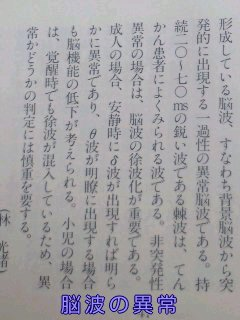 形成している脳波、すなわち背景脳波から突
発的に出現する一過性の異常脳波である。持
続二〇～七〇msの鋭い波である棘波は、てん
かん患者によくみられる波である。非突発性
異常の場合は、脳波の徐波化が重要である。
成人の場合、安静時にδ波が出現すれば明ら
かに異常であり、θ波が明瞭に出現する場合
も脳機能の低下が考えられる。小児の場合
は、覚醒時でも徐波が混入しているため、異
常かどうかの判定には慎重を要する。
（林 光緒）
脳波の異常